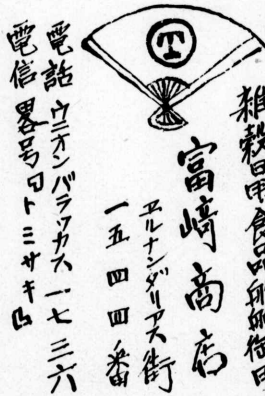 雑穀日用食品船舶御用
富崎商店
エルナンダリアス街
一五四四番
電話ウニオンバラッカス一七三六
電信畧号「トミサキ」